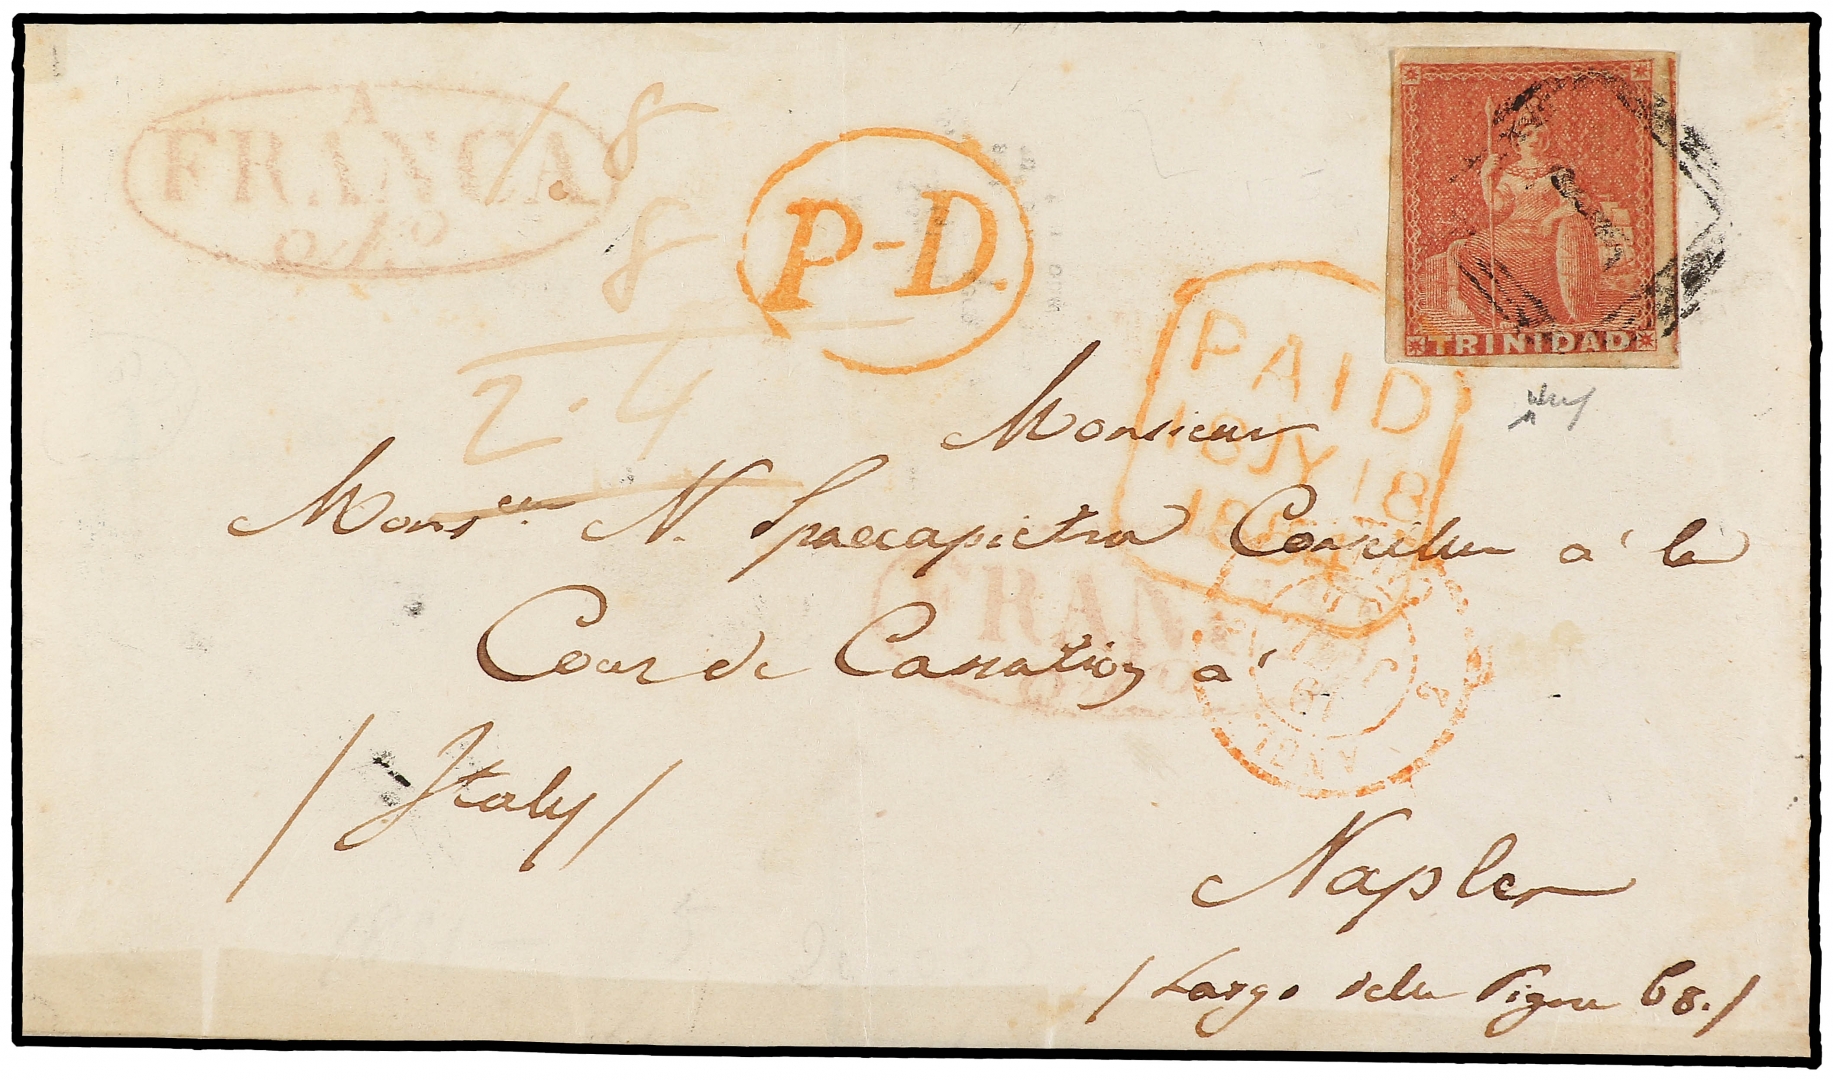 A
FRANCA
8
8
P-D.
TRINIDAD
PAID
18 JY 18
2.4
Monsieur
Monsieur N. Spaccapietra Conseiller à la
FRANCA
Cour de Cassation à
/ Italy /
Naples
/ Largo delle Pigne 68. /